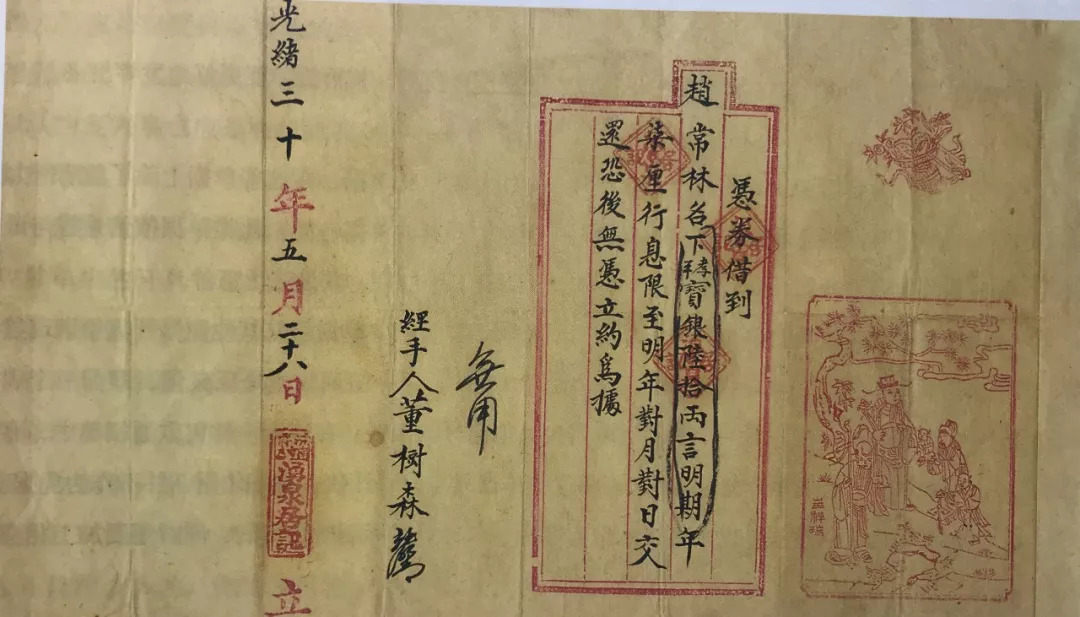 憑券借到
趙常林名下孝寶銀陸拾兩言明期年
柒厘行息限至明年對月對日交
還恐後無憑立約爲據
無用
經手人董树森
光緒三十年五月二十八日 湧泉居記 立